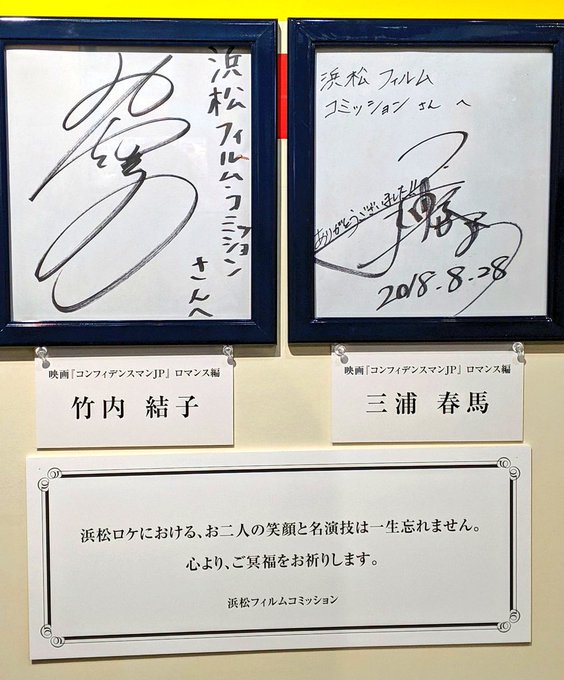 浜松フィルム・コミッション
さんへ
映画『コンフィデンスマンJP』ロマンス編
竹内 結子
浜松 フィルム
コミッション さん へ
ありがとうございました!!
2018.8.28
映画『コンフィデンスマンJP』ロマンス編
三浦 春馬
浜松ロケにおける、お二人の笑顔と名演技は一生忘れません。
心より、ご冥福をお祈りします。
浜松フィルムコミッション